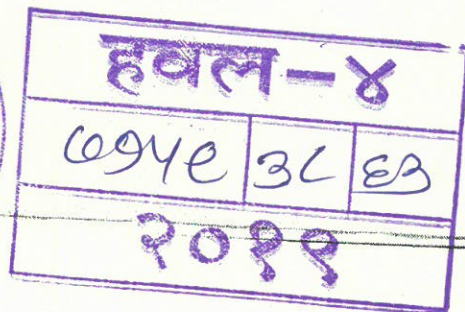 हवल-४
७१५९ ३८ ६३
२०१९